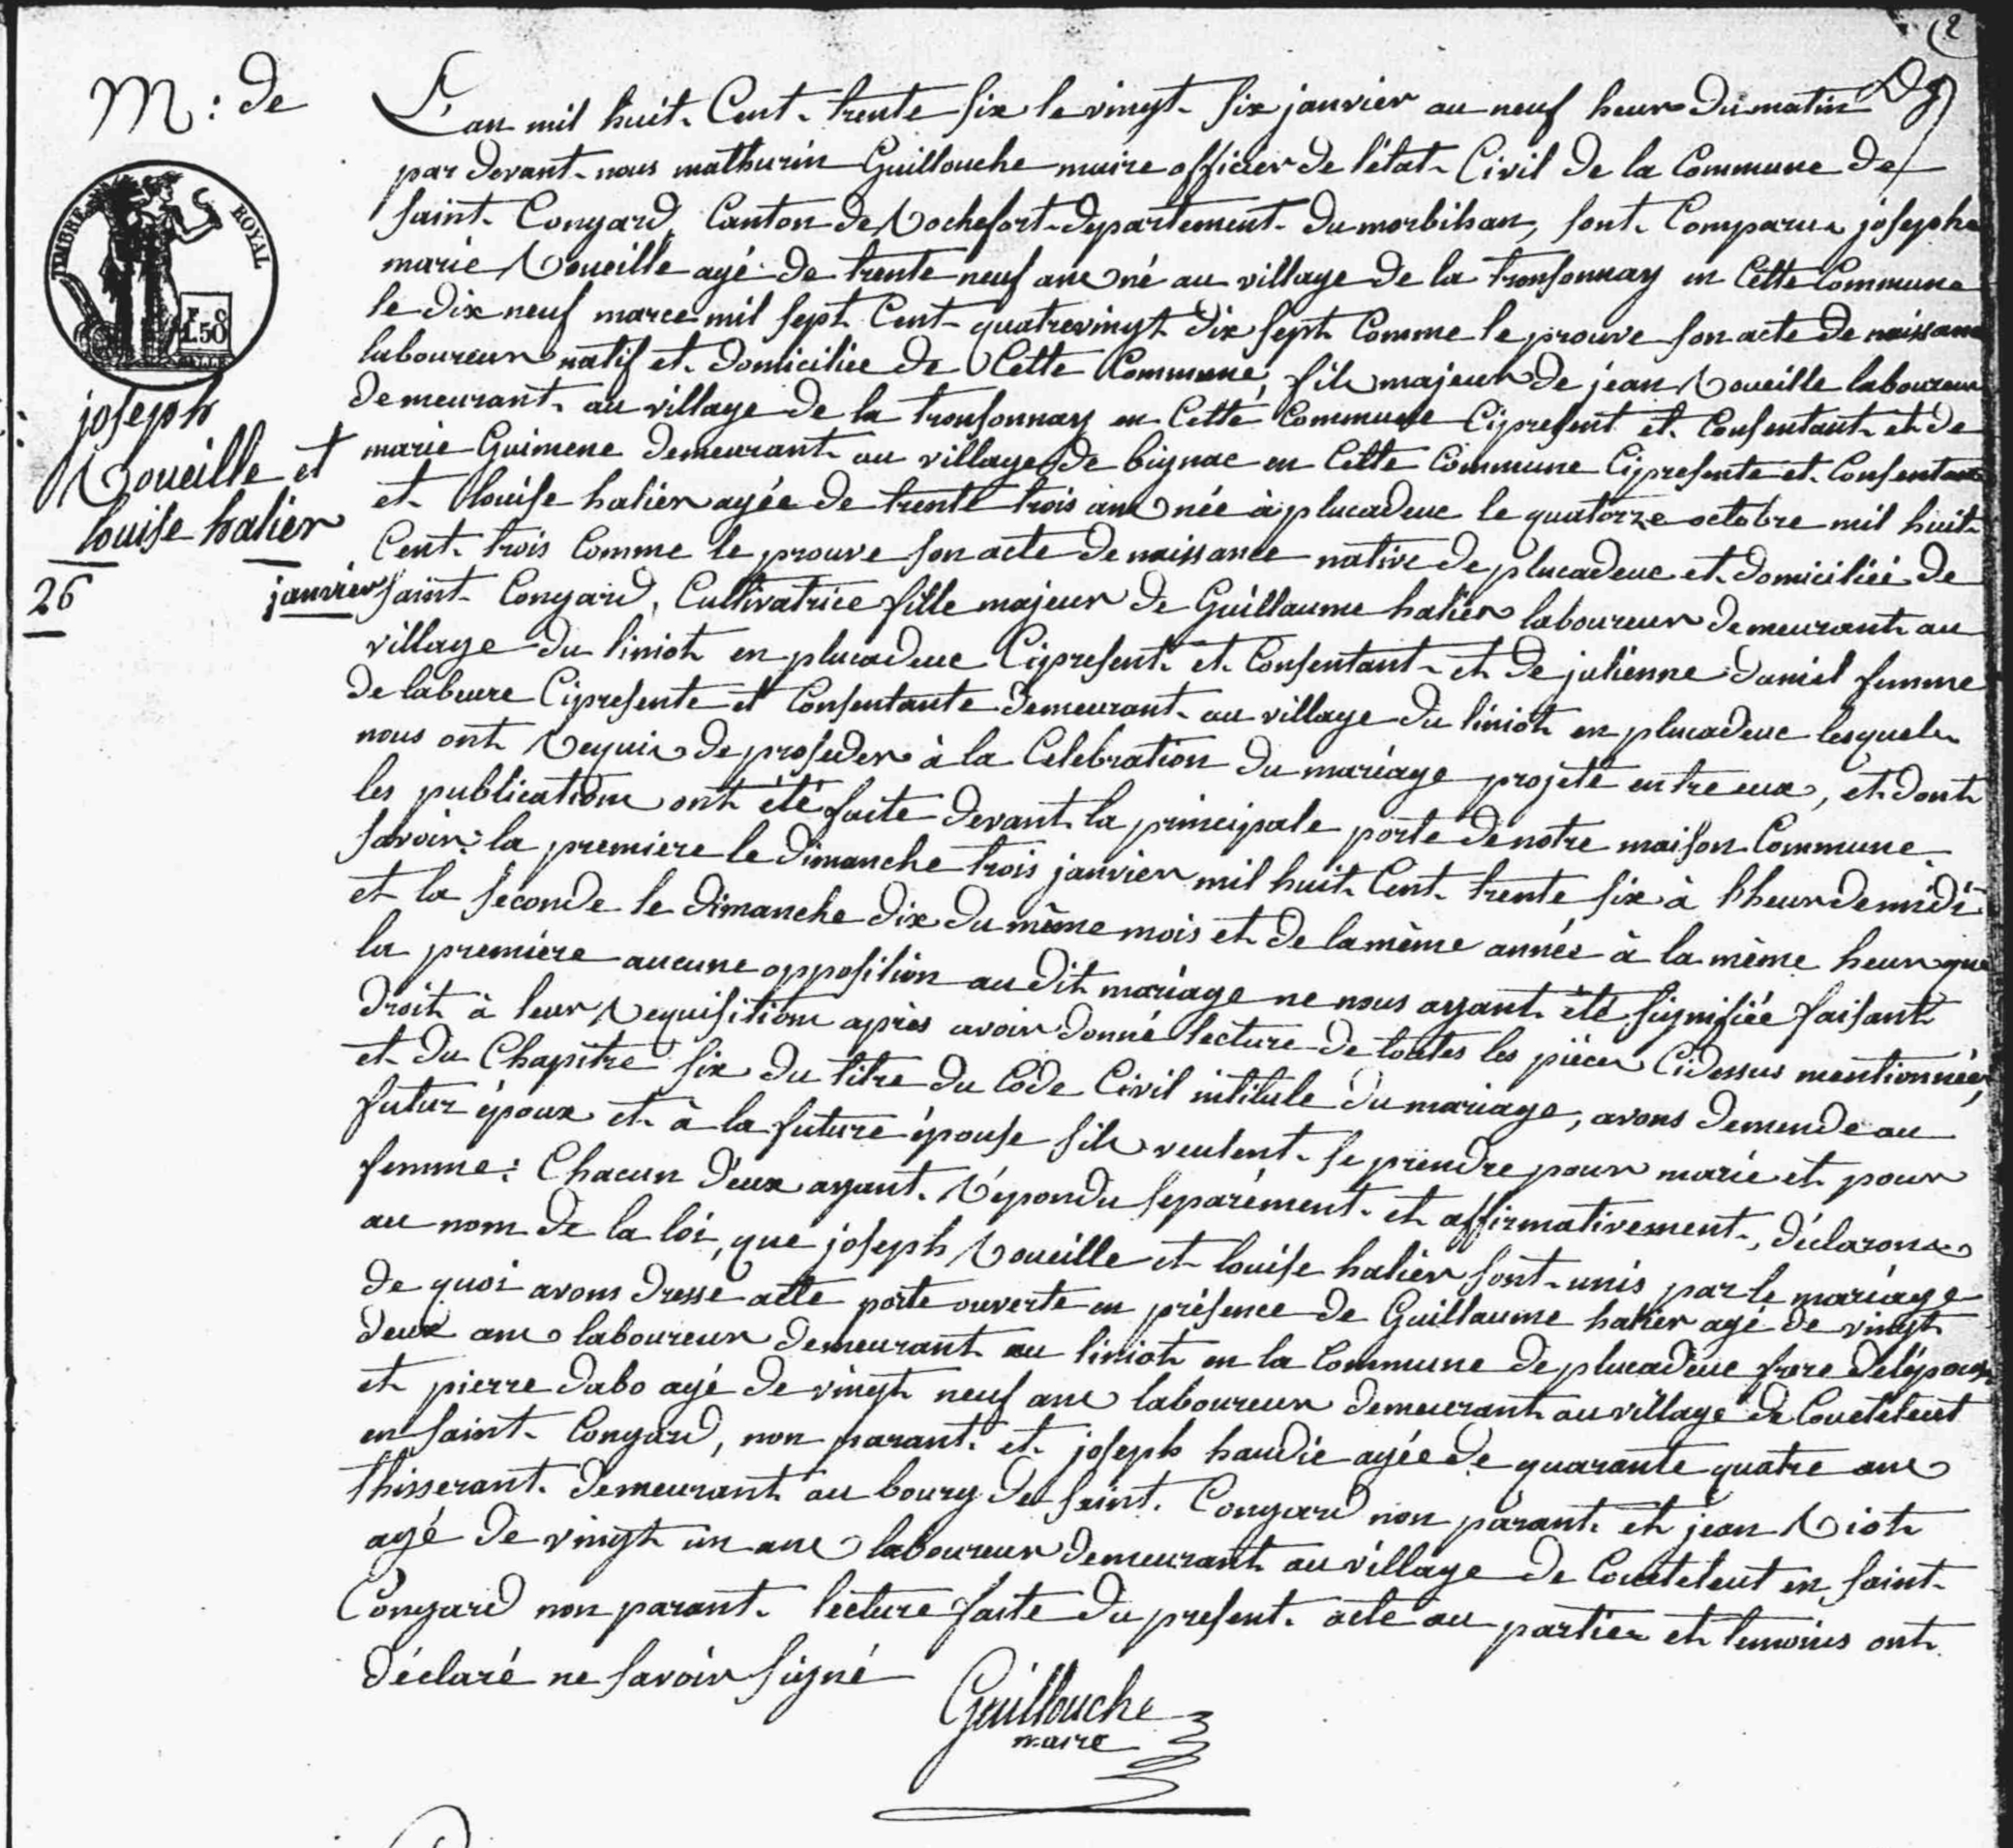 (2
M: de
TIMBRE ROYAL
1.50
joseph
Roueille et
louise halier
26 janvier
L'an mil huit Cent trente six le vingt six janvier au neuf heure du matin
par devant nous mathurin Guillouche maire officier de l'état Civil de la Commune de
saint Congard, Canton de Rochefort departement du morbihan, sont Comparus joseph
marie Roueille agé de trente neuf ans né au village de la tronsonnay en Cette Commune
le dix neuf marce mil sept Cent quatrevingt dix sept Comme le prouve son acte de naissance
laboureur natif et domiciliée de Cette Commune, fils majeur de jean Roueille laboureur
demeurant au village de la tronsonnay en Cette Commune Cipresent et Consentant et de
marie Guimene demeurant au village de bignac en Cette Commune Cipresente et Consentante
et louise halier agée de trente trois ans née à plucadeuc le quatorze octobre mil huit
Cent trois Comme le prouve son acte de naissance native de plucadeuc et domiciliée de
saint Congard, Cultivatrice fille majeur de Guillaume halier laboureur demeurant au
village du liniot en plucadeuc Cipresent et Consentant et de julienne daniel femme
de labeure Cipresente et Consentante demeurant au village du liniot en plucadeuc lesquels
nous ont Requis de proseder à la Celebration du mariage projeté entre eux, et dont
les publications ont été faite devant la principale porte de notre maison Commune
savoir: la premiere le dimanche trois janvier mil huit Cent trente six à lheur de midi
et la seconde le dimanche dix du même mois et de la même année à la même heur que
la premiere aucune opposition au dit mariage ne nous ayant été signifiée faisant
droit à leur Requisitions après avoir donné lecture de toutes les pièces Cidessus mentionnées,
et du Chapitre six du titre du Code Civil intitule du mariage, avons demende au
futur époux et à la future épouse sils veulent se prendre pour marié et pour
femme: Chacun d'eux ayant Répondu separément et affirmativement, déclarons
au nom de la loi, que joseph Roueille et louise halier sont unis par le mariage
de quoi avons dresse acte porte ouverte en présence de Guillaume halier agé de vingt
deux ans laboureur demeurant au liniot en la Commune de plucadeuc frere de lépouse
et pierre dabo agé de vingt neuf ans laboureur demeurant au village de Coueteleut
en saint Congard, non parant et joseph haudié agée de quarante quatre ans
thisserant demeurant au bourg de saint Congard non parant et jean Riot
agé de vingt un ans laboureur demeurant au village de Coueteleut en saint
Congard non parant lecture faite du present acte au partier et temoins ont
déclaré ne savoir signé
Guillouche
maire